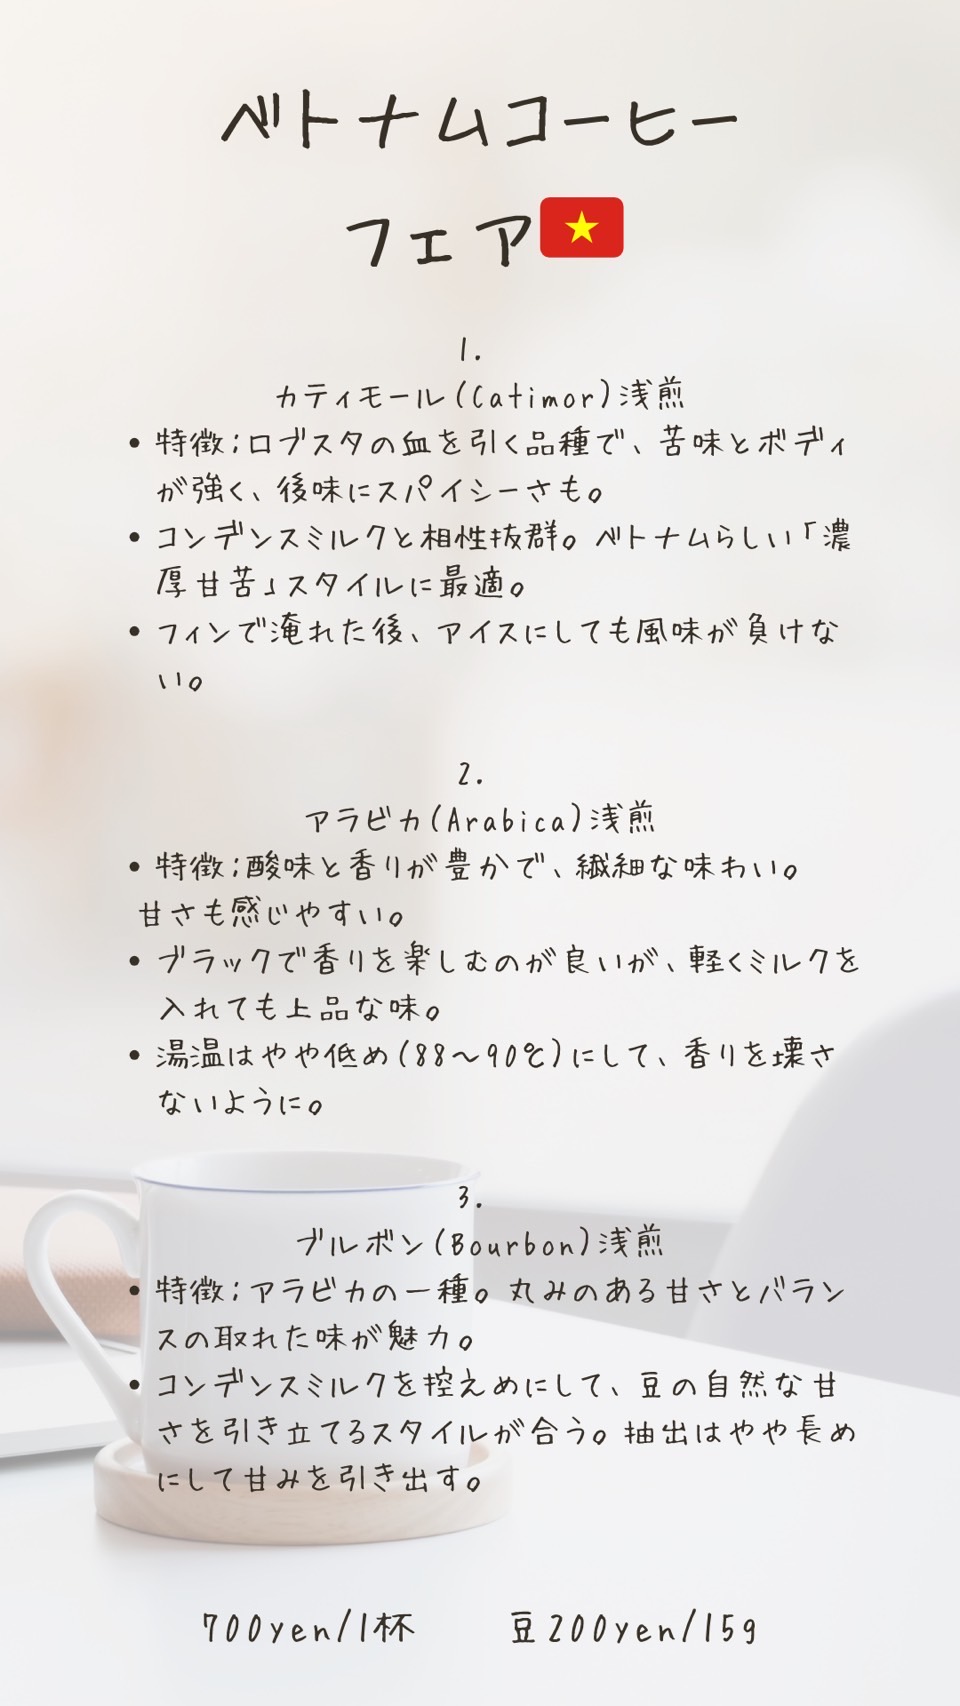 ベトナムコーヒー
フェア🇻🇳
1.
カティモール(Catimor)浅煎
• 特徴;ロブスタの血を引く品種で、苦味とボディ
が強く、後味にスパイシーさも。
• コンデンスミルクと相性抜群。ベトナムらしい「濃
厚甘苦」スタイルに最適。
• フィンで淹れた後、アイスにしても風味が負けな
い。
2.
アラビカ(Arabica)浅煎
• 特徴;酸味と香りが豊かで、繊細な味わい。
甘さも感じやすい。
• ブラックで香りを楽しむのが良いが、軽くミルクを
入れても上品な味。
• 湯温はやや低め(88〜90℃)にして、香りを壊さ
ないように。
3.
ブルボン(Bourbon)浅煎
• 特徴;アラビカの一種。丸みのある甘さとバラン
スの取れた味が魅力。
• コンデンスミルクを控えめにして、豆の自然な甘
さを引き立てるスタイルが合う。抽出はやや長め
にして甘みを引き出す。
700yen/1杯 豆200yen/15g